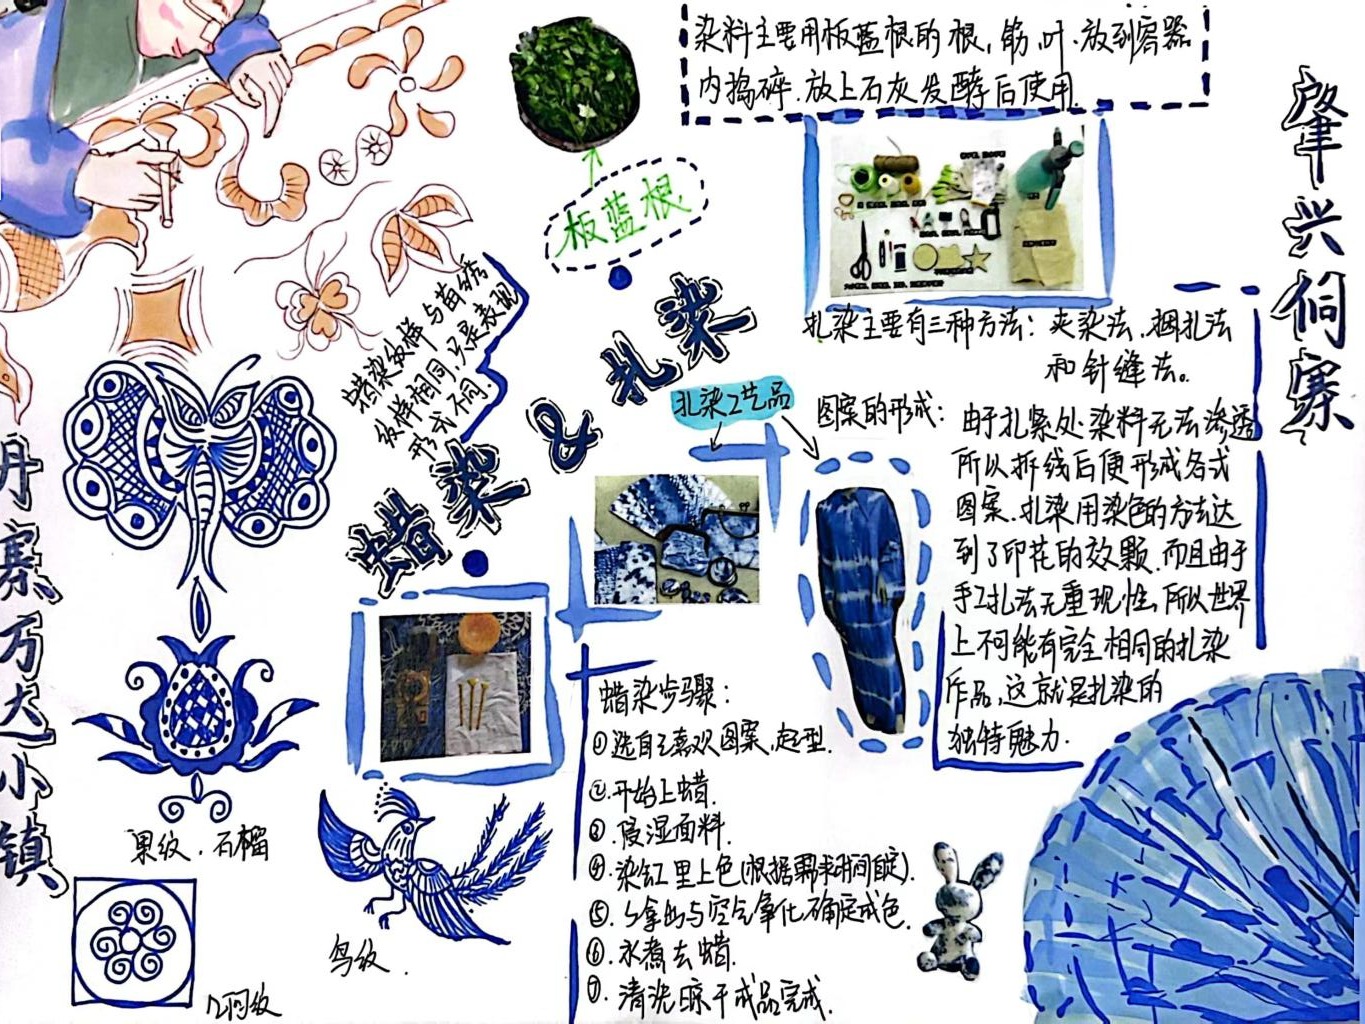 染料主要用板蓝根的根,筋,叶.放到容器
内捣碎.放上石灰发酵后使用.
肇兴侗寨
板蓝根
蜡染纹样与苗绣
纹样相同,只是表现
形式不同.
蜡染&扎染
扎染主要有三种方法:夹染法、捆扎法
和针缝法。
扎染工艺品
图案的形成:
由于扎紧处染料无法渗透
所以拆线后便形成各式
图案.扎染用染色的方法达
到了印花的效颗.而且由于
手工扎法无重现性,所以世界
上不可能有完全相同的扎染
作品,这就是扎染的
独特魅力.
丹寨万达小镇
蜡染步骤:
①选自己喜欢图案,起型.
②.开始上蜡.
③.侵湿面料.
④.染缸里上色(根据需求时间自定).
⑤.拿出与空气氧化确定成色.
⑥.水煮去蜡.
⑦.清洗晾干成品完成.
果纹.石榴
鸟纹.
几何纹